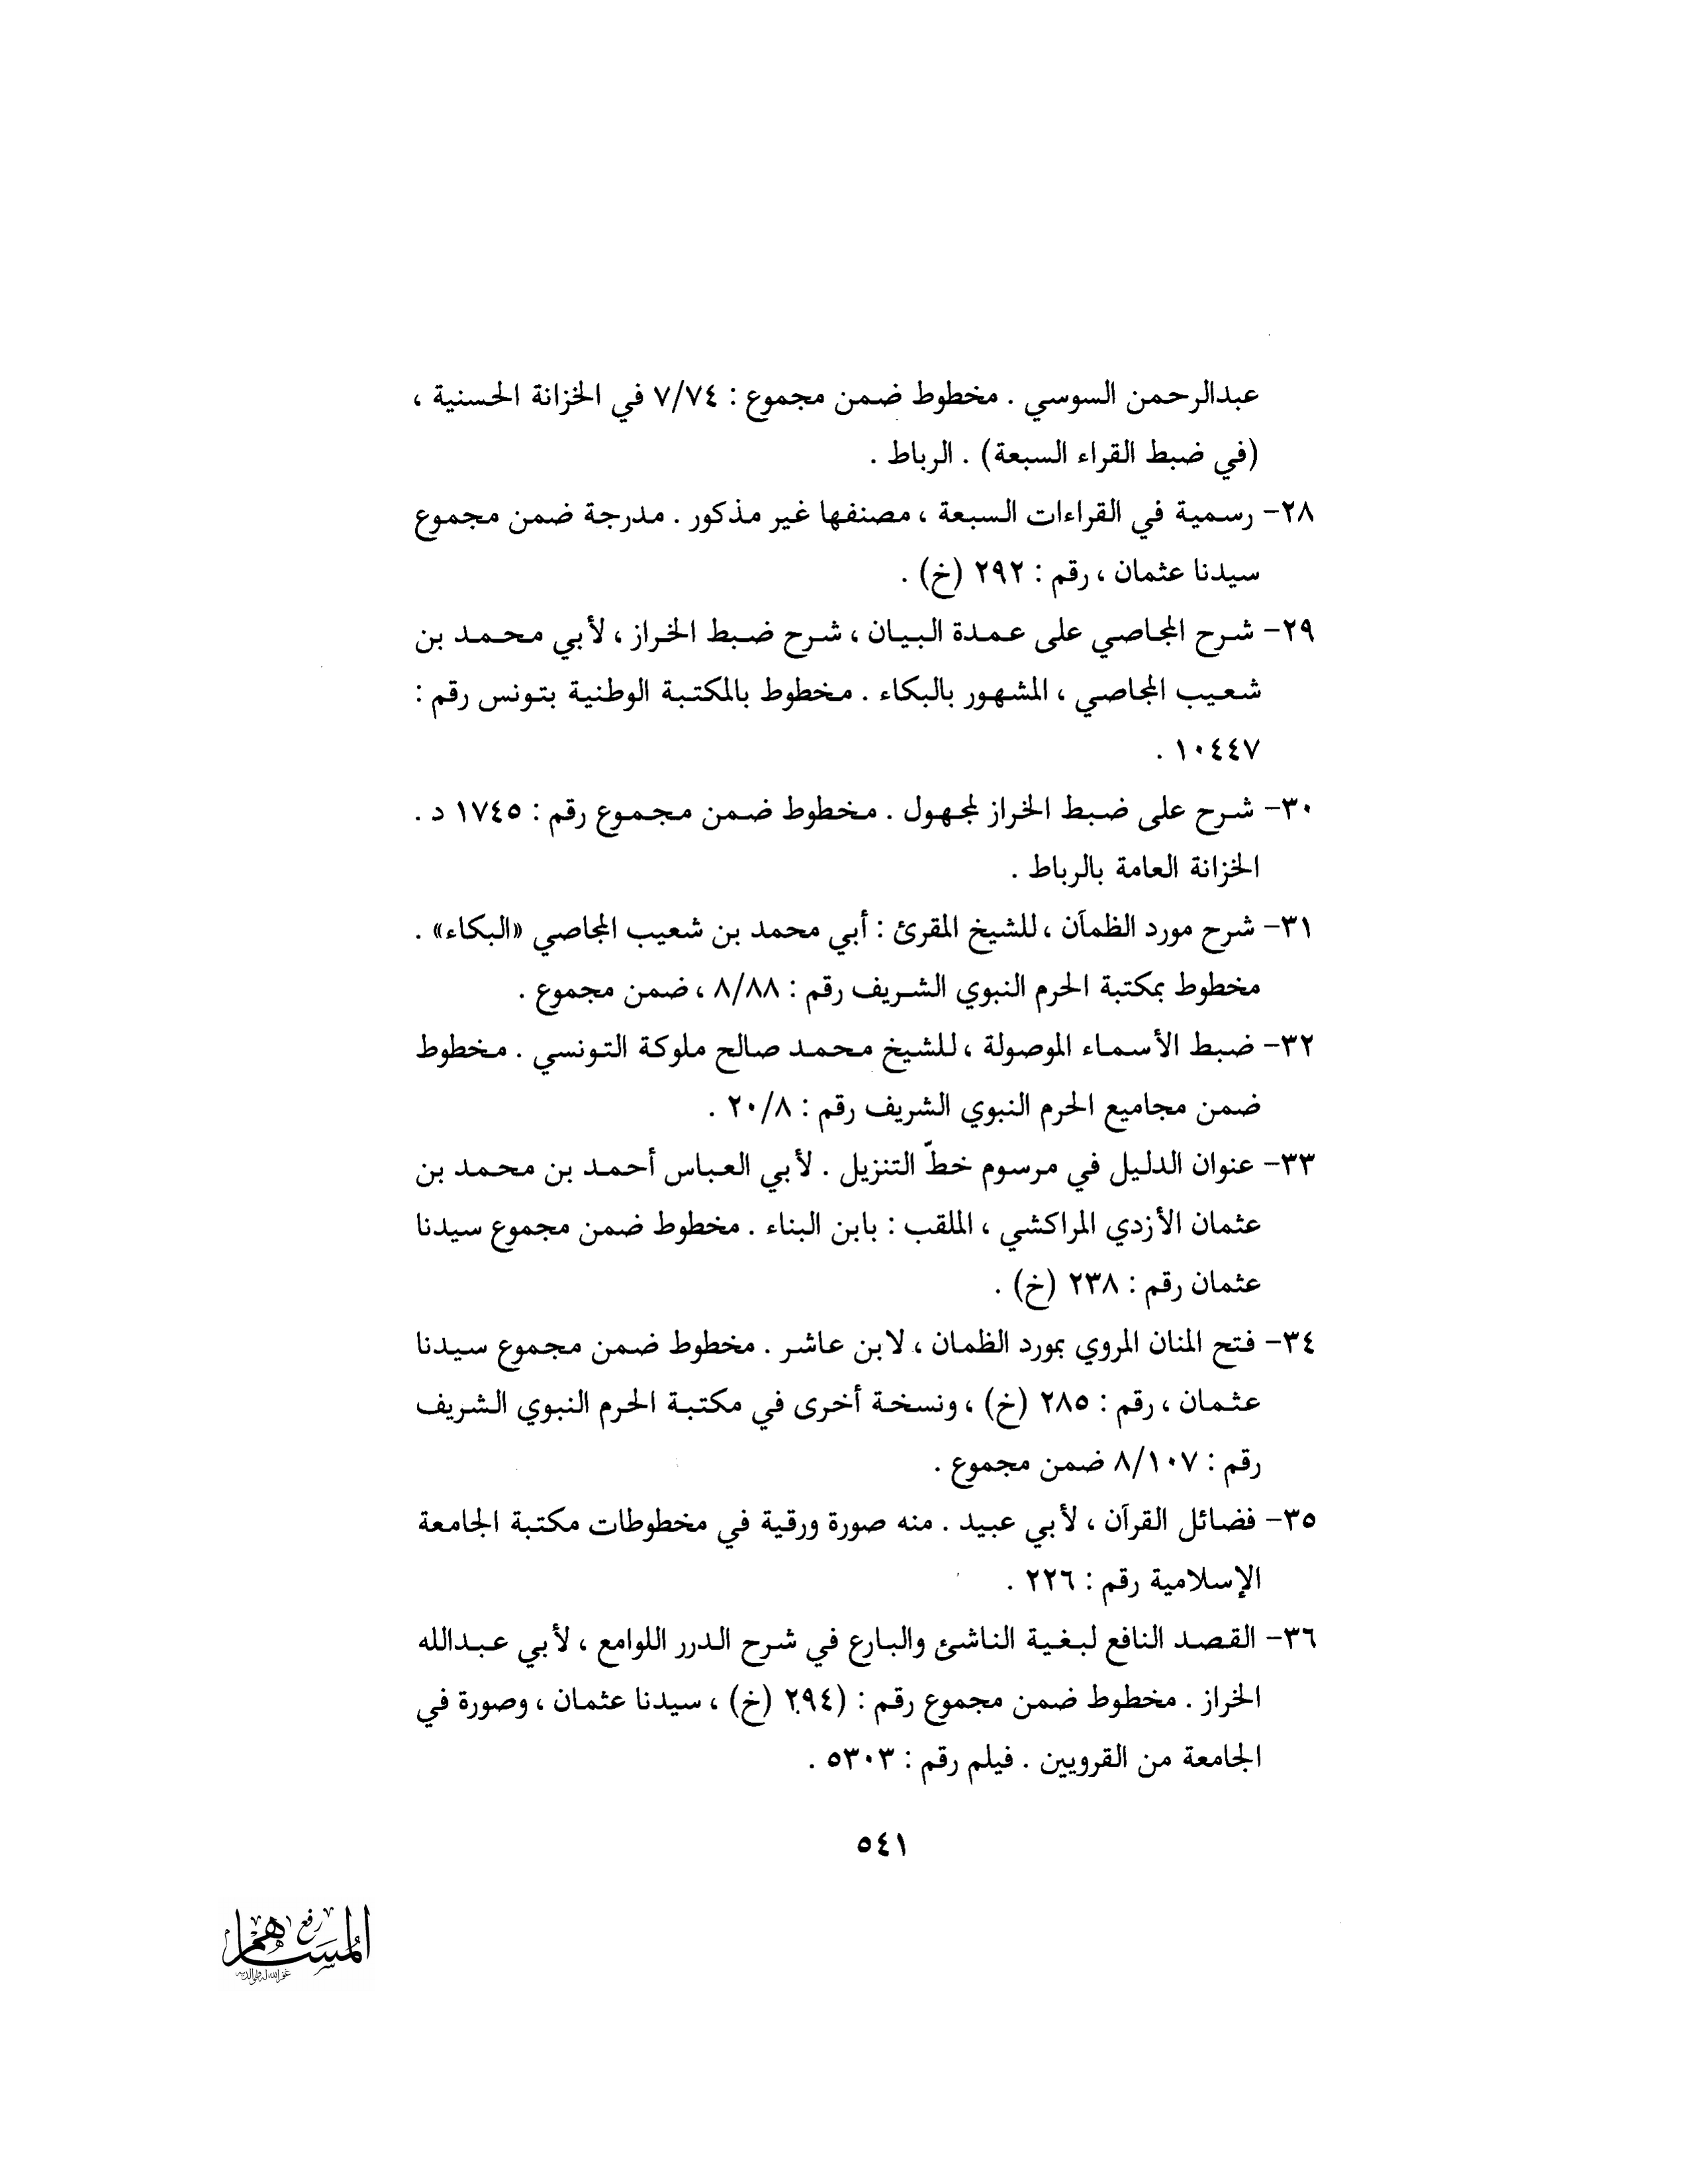 عبدالرحمن السوسي . مخطوط ضمن مجموع : ٧/٧٤ في الخزانة الحسنية ،
(في ضبط القراء السبعة) . الرباط .
٢٨- رسمية في القراءات السبعة ، مصنفها غير مذكور . مدرجة ضمن مجموع
سيدنا عثمان ، رقم : ٢٩٢ (خ) .
٢٩- شرح المجاصي على عمدة البيان ، شرح ضبط الخراز ، لأبي محمد بن
شعيب المجاصي ، المشهور بالبكاء . مخطوط بالمكتبة الوطنية بتونس رقم :
١٠٤٤٧ .
٣٠- شرح على ضبط الخراز لمجهول . مخطوط ضمن مجموع رقم : ١٧٤٥ د .
الخزانة العامة بالرباط .
٣١- شرح مورد الظمآن ، للشيخ المقرئ : أبي محمد بن شعيب المجاصي «البكاء» .
مخطوط بمكتبة الحرم النبوي الشريف رقم : ٨/٨٨ ، ضمن مجموع .
٣٢- ضبط الأسماء الموصولة ، للشيخ محمد صالح ملوكة التونسي . مخطوط
ضمن مجاميع الحرم النبوي الشريف رقم : ٢٠/٨ .
٣٣- عنوان الدليل في مرسوم خطّ التنزيل . لأبي العباس أحمد بن محمد بن
عثمان الأزدي المراكشي ، الملقب : بابن البناء . مخطوط ضمن مجموع سيدنا
عثمان رقم : ٢٣٨ (خ) .
٣٤- فتح المنان المروي بمورد الظمان ، لابن عاشر . مخطوط ضمن مجموع سيدنا
عثمان ، رقم : ٢٨٥ (خ) ، ونسخة أخرى في مكتبة الحرم النبوي الشريف
رقم : ٨/١٠٧ ضمن مجموع .
٣٥- فضائل القرآن ، لأبي عبيد . منه صورة ورقية في مخطوطات مكتبة الجامعة
الإسلامية رقم : ٢٢٦ .
٣٦- القصد النافع لبغية الناشئ والبارع في شرح الدرر اللوامع ، لأبي عبدالله
الخراز . مخطوط ضمن مجموع رقم : (٢٩٤ (خ) ، سيدنا عثمان ، وصورة في
الجامعة من القرويين . فيلم رقم : ٥٣٠٣ .
٥٤١
رفع
غفر الله له ولوالديه